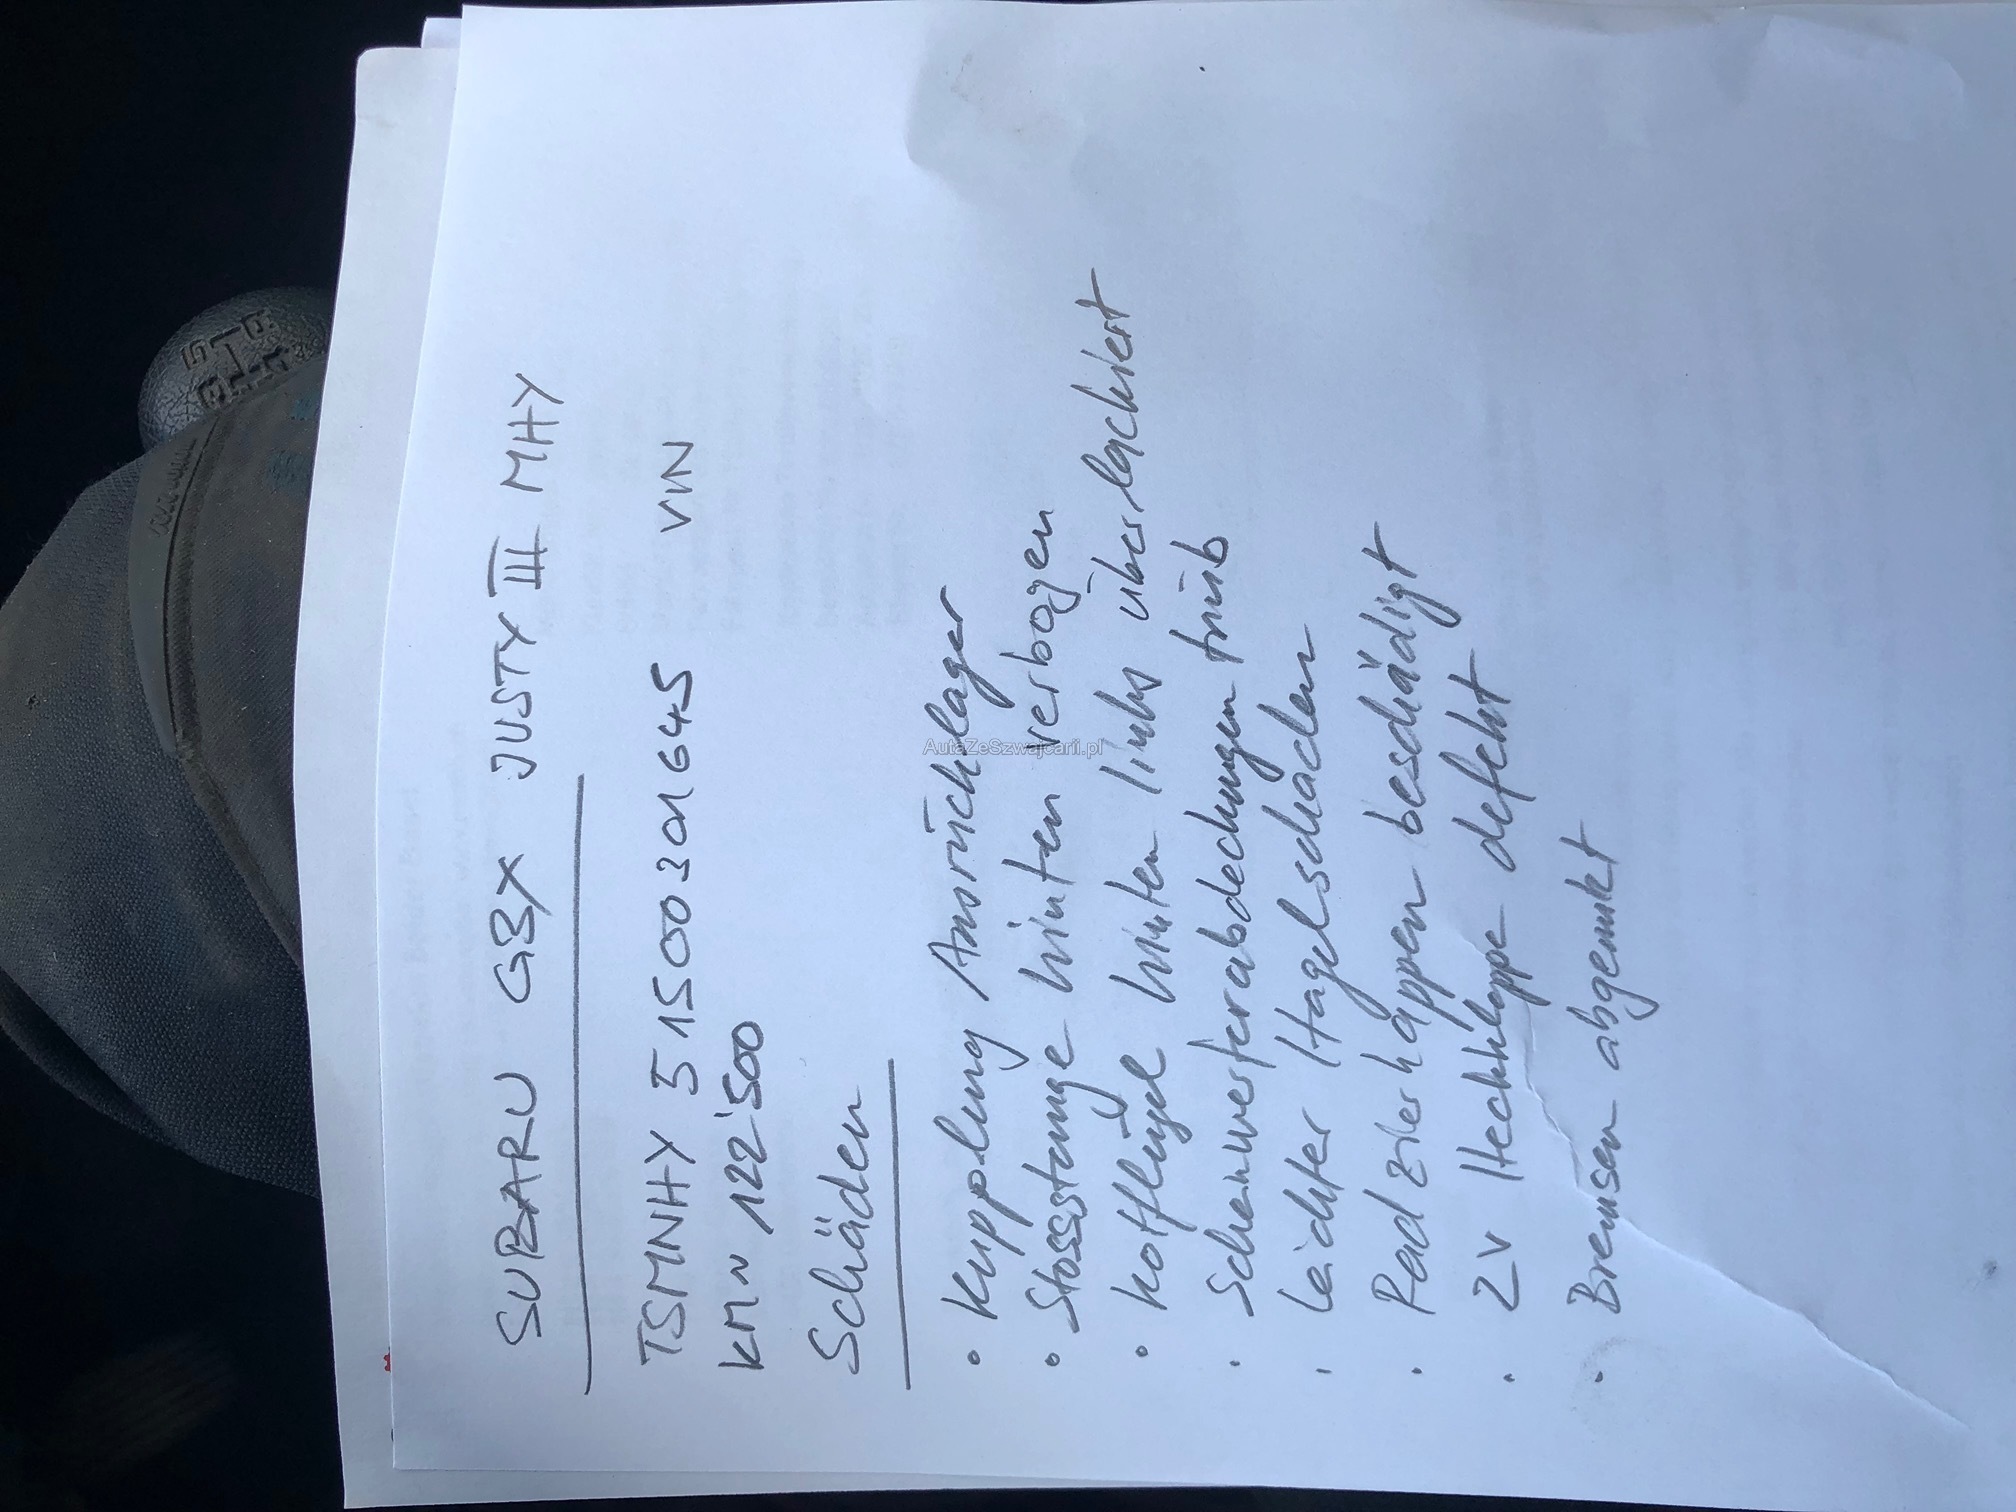 SUBARU G3X JUSTY III MHY
TSMNHY 51S00301645 VIN
KM ~ 122'500
Schäden
• Kupplung Ausrücklager
• Stossstange hinten verbogen
• Kotflügel hinten links überlackiert
• Scheinwerferabdeckungen trüb
• Leichter Hagelschaden
• Radzierkappen beschädigt
• ZV Heckklappe defekt
• Bremsen abgenutzt
AutaZeSzwajcarii.pl